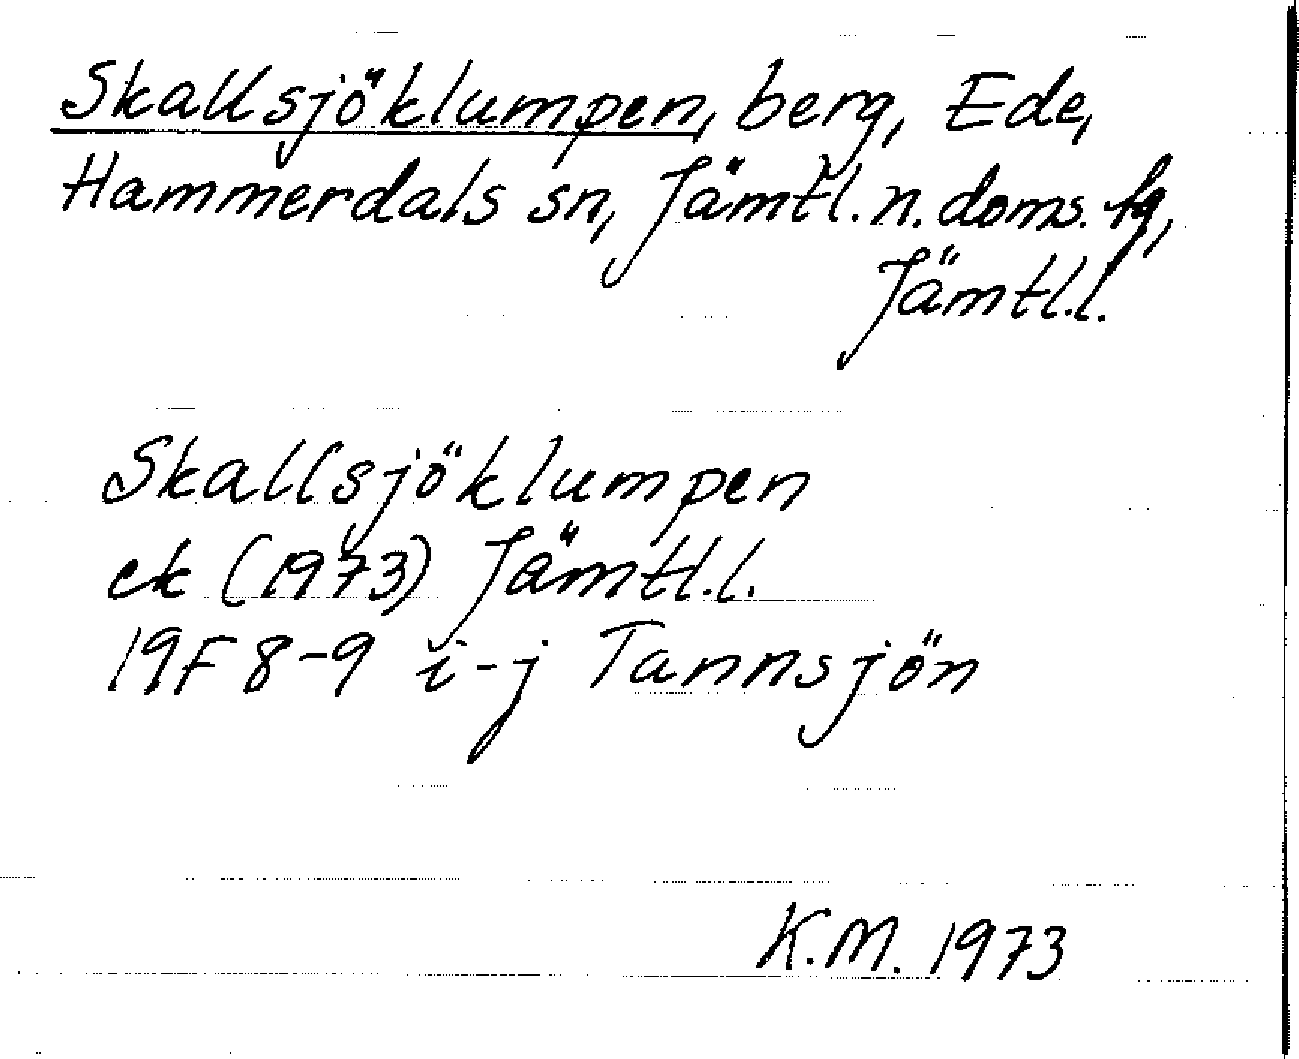 Skallsjöklumpen, berg, Ede,
Hammerdals sn, Jämtl. n. doms. fg,
Jämtl.l.
Skallsjöklumpen
ek (1973) Jämtl.l.
19F 8-9 i-j Tannsjön
K.M. 1973